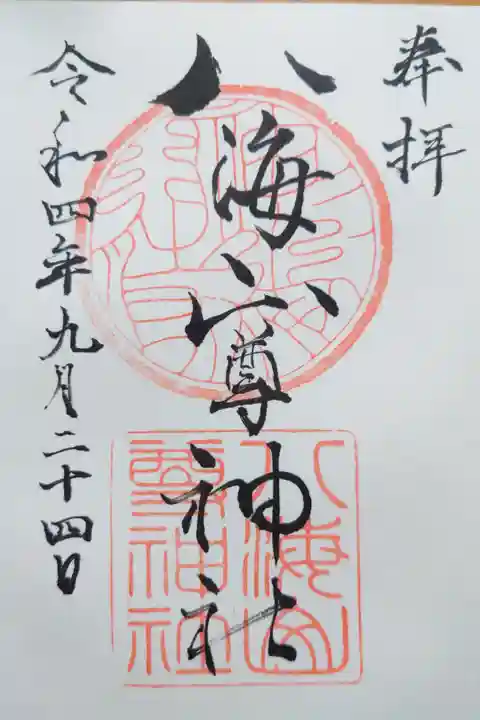 奉拝
八海山尊神社
令和四年九月二十四日
八海山
尊神社